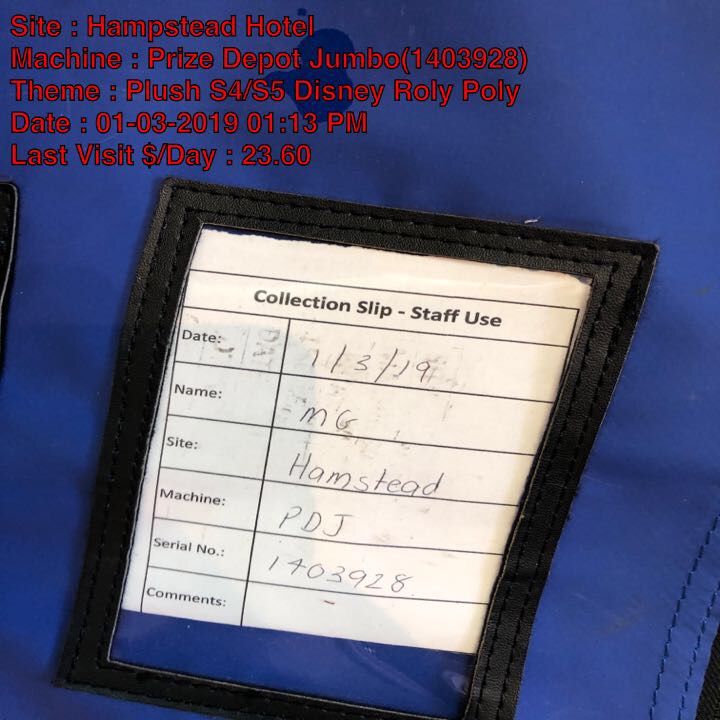 Site : Hampstead Hotel
Machine : Prize Depot Jumbo(1403928)
Theme : Plush S4/S5 Disney Roly Poly
Date : 01-03-2019 01:13 PM
Last Visit $/Day : 23.60
Collection Slip - Staff Use
Date: 1/3/19
Name: MG
Site: Hamstead
Machine: PDJ
Serial No.: 1403928
Comments: